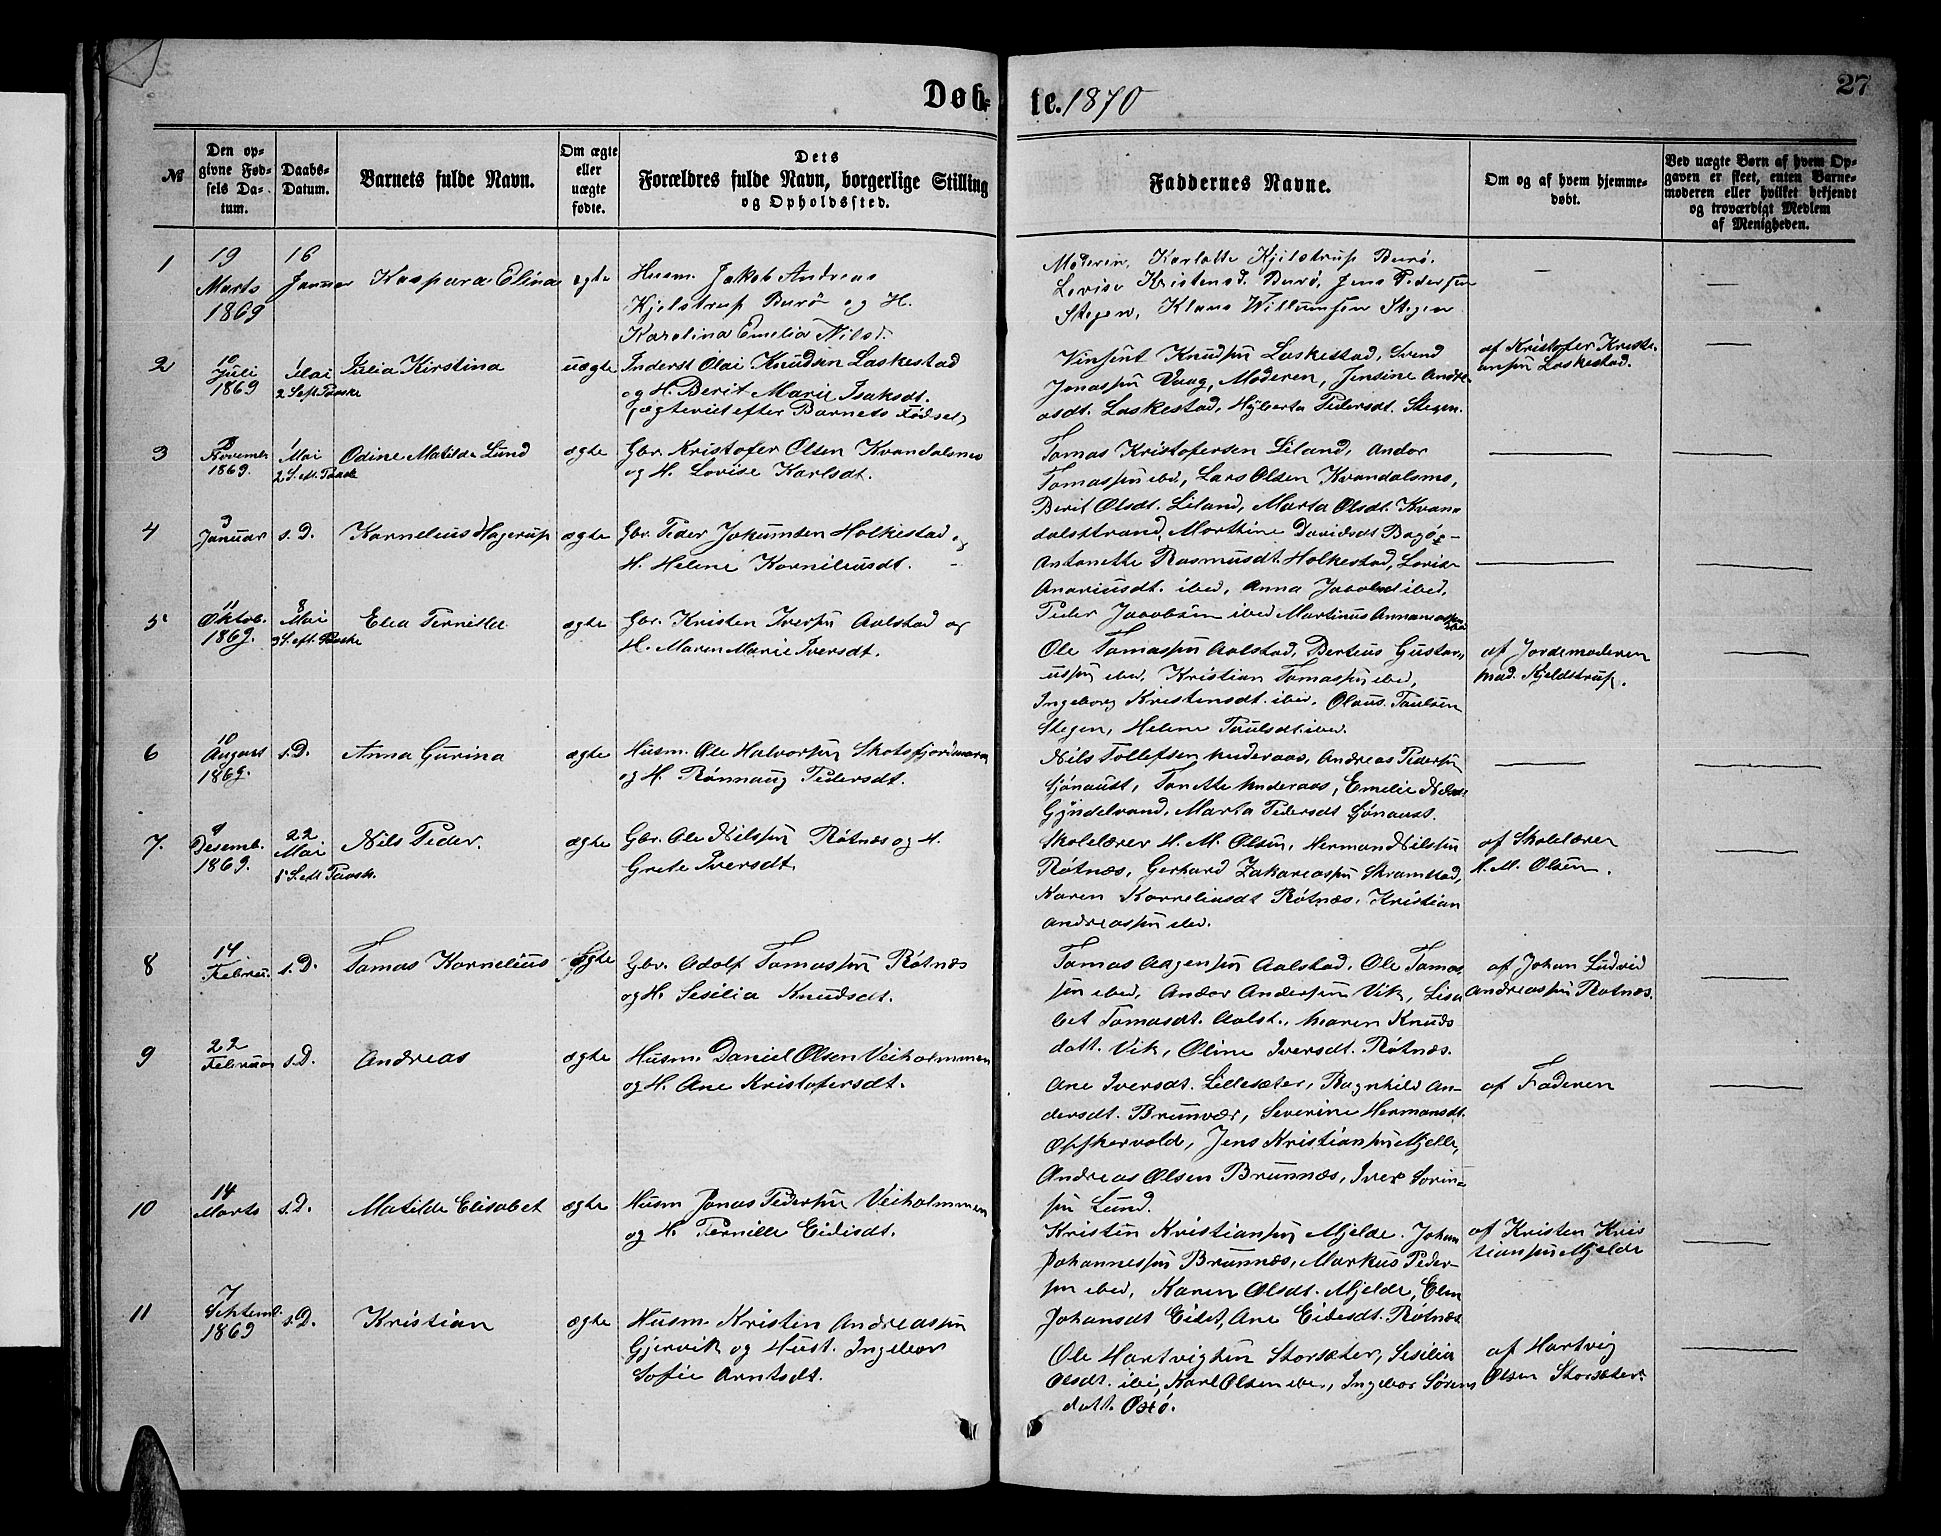 Døb-
te. 1870
27
№
Den op-
givne Fød-
sels Da-
tum.
Daabs-
Datum.
Barnets fulde Navn.
Om ægte
eller
uægte
fødte.
Dets
Forældres fulde Navn, borgerlige Stilling
og Opholdssted.
Faddernes Navne.
Om og af hvem hjemme-
døbt.
Ved uægte Børn af hvem Op-
gaven er skeet, enten Barne-
moderen eller hvilket bekjendt
og troværdigt Medlem
af Menigheden.
1
19
Marts
1869
16
Januar
Kaspara Elina
ægte
Husm. Jakob Andreas
Kjelstrup Burø og H.
Karolina Emelia Nilsd.
Moderen, Karlotte Kjelstrup Burø,
Lovise Kristensd. Burø, Jens Pedersen
Stegen, Klaus Willumsen Stegen
—
—
2
10
Juli
1869
1 Mai
2 S. eft. Paaske
Julia Kirstina
uægte
Inderst Olai Knudsen Laskestad
og H. Berit Marie Isaksdt.
gægteviet efter Barnets Fødsel,
Vinsent Knudsen Laskestad, Svend
Jonassen Vaag, Moderen, Jensine Andre-
asdt. Laskestad, Hylberta Pedersdt. Stegen.
af Kristofer Krist-
ansen Laskestad.
—
3
Novembr
1869.
1
Mai
2 S. eft. Paaske
Odine Matilde Lund
ægte
Gbr. Kristofer Olsen Kvandalsnes
og H. Lovise Karlsdt.
Tomas Kristofersen Liland, Andor
Tomassen ibd, Lars Olsen Kvandalsnes,
Berit Olsdt. Liland, Marta Olsdt. Kvan-
dalsstrand, Marthine Davidsdt Bogø,-
—
—
4
3
Januar
s. D.
Kornelius Hagerup
ægte
Gbr. Peder Jakumsen Holkestad og
H. Helene Kornileusdt.
Antonette Rasmusdt. Holkestad, Lovise
Anariusdt. ibed, Anna Jacobsd ibed,
Peder Jacobsen ibed Martinus Annanias
—
—
5
11
Oktob.
1869.
8
Mai
3 S. eft. Paaske
Elea Pernille
ægte
Gbr. Kristen Iversen Aalstad og
H. Maren Marie Iversdt.
Ole Tomassen Aalstad, Berteus Gustav-
ussen ibed, Kristian Tomassen ibed,
Ingeborg Kristensdt. ibed, Olaus Paulsen
Stegen, Helene Paulsdt. ibed.
af Jordemoderen
Mad. Kjeldstrup.
—
6
10
August
1869.
s. D.
Anna Gurina
ægte
Husm. Ole Halvorsen Skotsfjordmarn
og H. Rønnaug Pedersdt.
Nils Tollefsen Underaas, Andreas Pedersen
Sjønaust, Tonette Underaas, Emelie Nilsd.
Gyndelvand, Marta Pedersdt Sjønaust.
—
—
7.
9
Desemb.
1869.
22
Mai
5 S. eft. Paask.
Nils Peder.
ægte
Gbr. Ole Nilssen Røtnæs og H.
Grete Iversdt.
Skolelærer H. M. Olsen, Herman Nilssen
Røtnæs, Gerhard Zakariassen Skramstad,
Karen Korneliusdt Røtnæs, Kristian
Andreassen ibed.
af Skolelærer
H. M. Olsen.
—
8
14
Februar.
s. D.
Tomas Kornelius
Ægte
Gbr. Adolf Tomassen Røtnæs
og H. Sesilia Knudsdt.
Tomas Aagensen Aalstad, Ole Tomas-
sen ibed, Andor Andersen Vik, Lisa-
bet Tomasdt. Aalst., Maren Knuds
datt. Vik, Oline Iversdt. Røtnæs.
af Johan Ludvig
Andreassen Røtnæs.
—
9
22
Februar
s. D.
Andreas
ægte
Husm. Daniel Olsen Veiholmmen
og H. Ane Kristofersdt.
Ane Iversdt. Lillesæter, Ragnhild An-
dersdt. Brunvær, Severine Hermansdt.
Opskervold, Jens Kristiansen Mjelle,
Andreas Olsen Brunnæs, Iver Sørin-
sen Lund.
af Faderen
—
10
14
Marts
s. D.
Matilde Elisabet
ægte
Husm Jonas Pedersen Veiholmmen
og H. Pernille Eidisdt.
Kristen Kristiansen Mjelde. Johan
Johannessen Brunnæs, Markus Peder-
sen ibed, Karen Olsdt. Mjelde, Elen
Johansdt Eidet, Ane Eidesdt. Røtnæs
af Kristen Kris
tiansen Mjelde
—
11
7
Septemb.
1869
s. D.
Kristian
ægte
Husm. Kristen Andreassen
Gjervik og Hust. Ingebor
Sofie Arntsdt.
Ole Hartvigsen Storsæter, Sesilia
Olsdt. ibi, Karl Olsen ibed, Ingebor Sørens
datt. Oxø.
af Hartvig
Olsen Storsæter
—